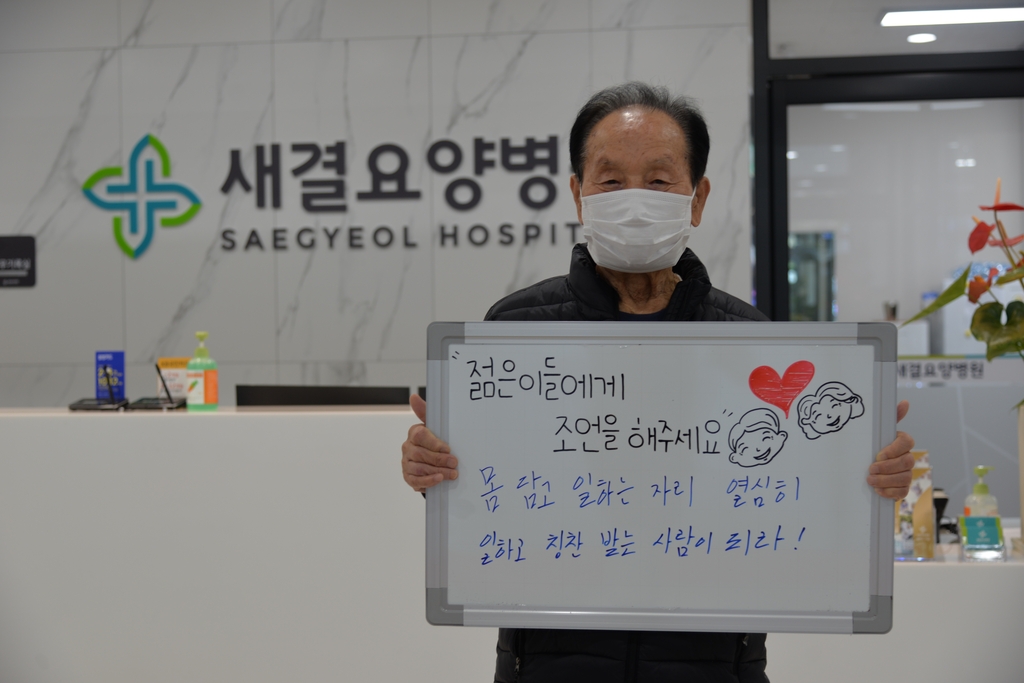 새결요양병
SAEGYEOL HOSPIT
"젊은이들에게
조언을 해주세요"
몸 담고 일하는 자리 열심히
일하고 칭찬 받는 사람이 되라!
새결요양병원